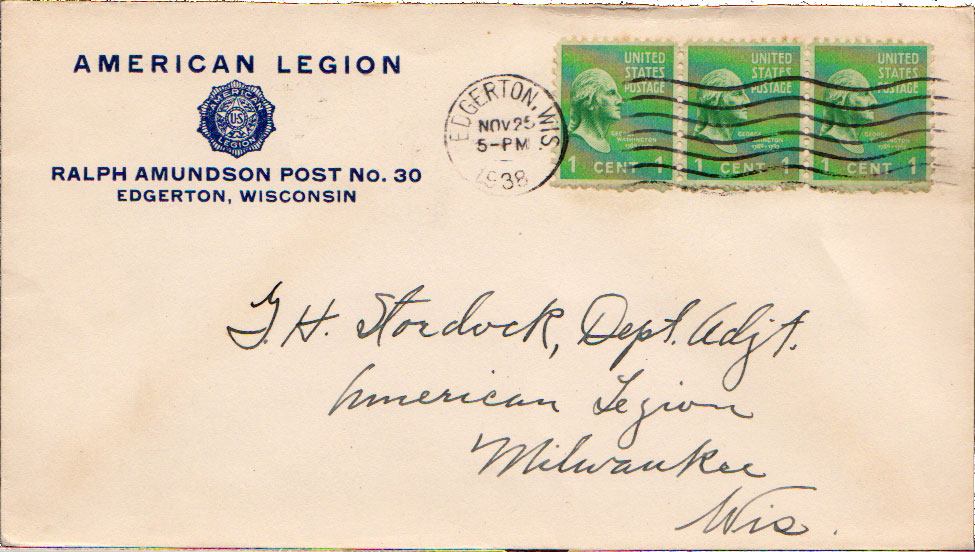 AMERICAN LEGION
AMERICAN
US
LEGION
RALPH AMUNDSON POST No. 30
EDGERTON, WISCONSIN
EDGERTON, WIS.
NOV 25
5-PM
1938
UNITED STATES POSTAGE
GEORGE WASHINGTON
1 CENT 1
UNITED STATES POSTAGE
GEORGE WASHINGTON
1789-1797
1 CENT 1
UNITED STATES POSTAGE
GEORGE WASHINGTON
1789-1797
1 CENT 1
G. H. Stordock, Dept. Adjt.
American Legion
Milwaukee
Wis.